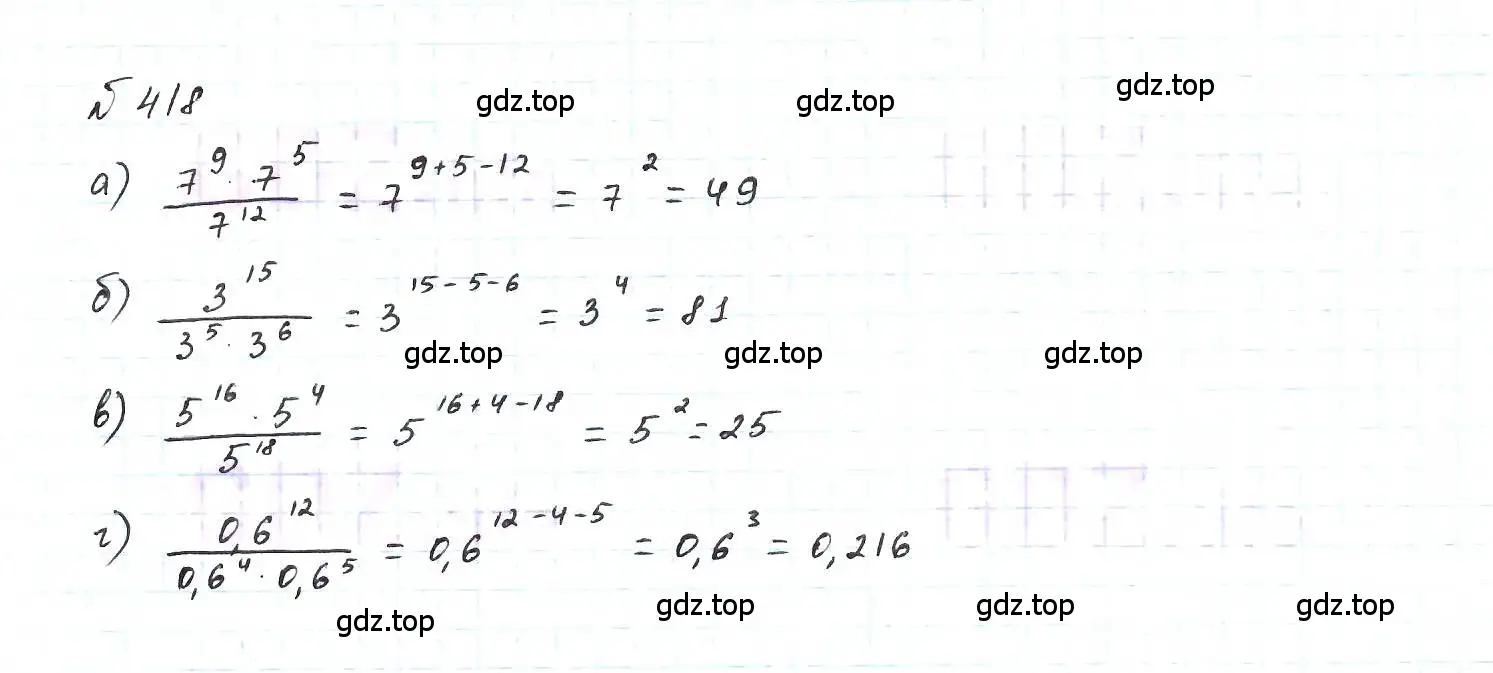 № 418
gdz.top gdz.top gdz.top
а) (7^9 · 7^5)/7^12 = 7^(9+5-12) = 7^2 = 49
б) 3^15/(3^5 · 3^6) = 3^(15-5-6) = 3^4 = 81
gdz.top gdz.top gdz.top
в) (5^16 · 5^4)/5^18 = 5^(16+4-18) = 5^2 = 25
г) 0,6^12/(0,6^4 · 0,6^5) = 0,6^(12-4-5) = 0,6^3 = 0,216
gdz.top gdz.top gdz.top gdz.top